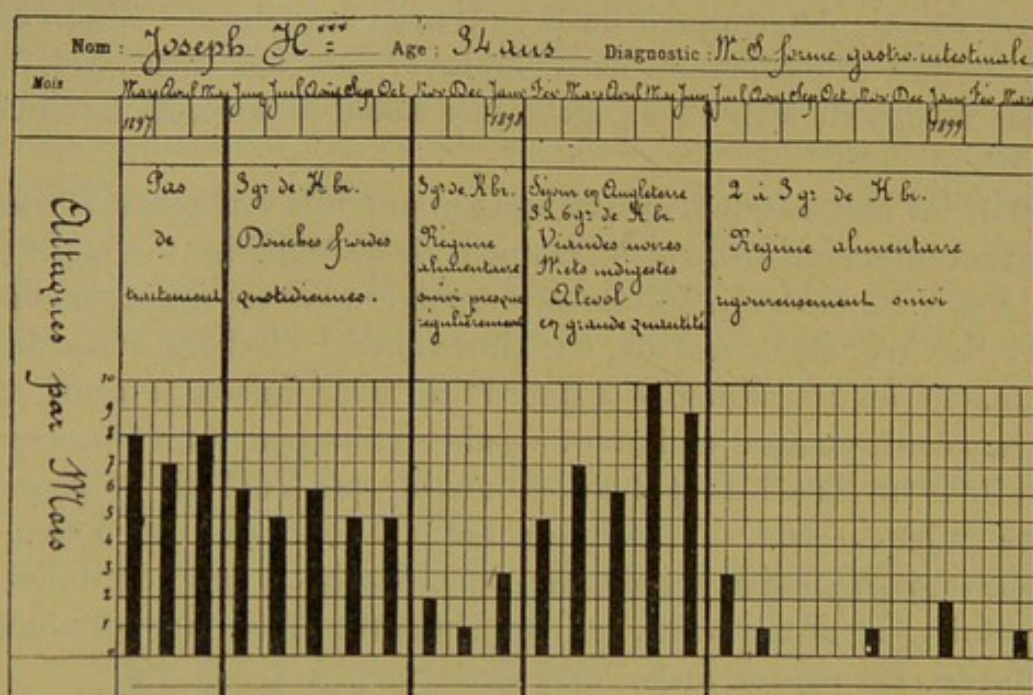 Nom : Joseph H*** Age : 34 ans Diagnostic : M. S. forme gastro-intestinale
Mois Mars Avril Mai Juin Juil Août Sep Oct Nov Dec Janv Fev Mars Avril Mai Juin Juil Aout Sep Oct Nov Dec Janv Fev Mars
1897 1898 1899
Attaques par Mois
Pas
de
traitement
3 gr de K br.
Douches froides
quotidiennes.
3 gr de K br.
Régime
alimentaire
suivi presque
régulièrement
Séjour en Angleterre
3 à 6 gr de K br.
Viandes noires
Mets indigestes
Alcool
en grande quantité
2 à 3 gr de K br.
Régime alimentaire
rigoureusement suivi
10
9
8
7
6
5
4
3
2
1
0